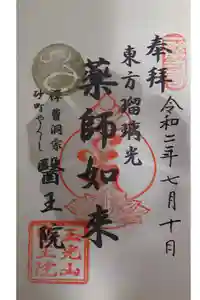 奉拝
令和二年七月十日
東方瑠璃光
薬師如来
禅曹洞宗
砂町やくし
醫王院